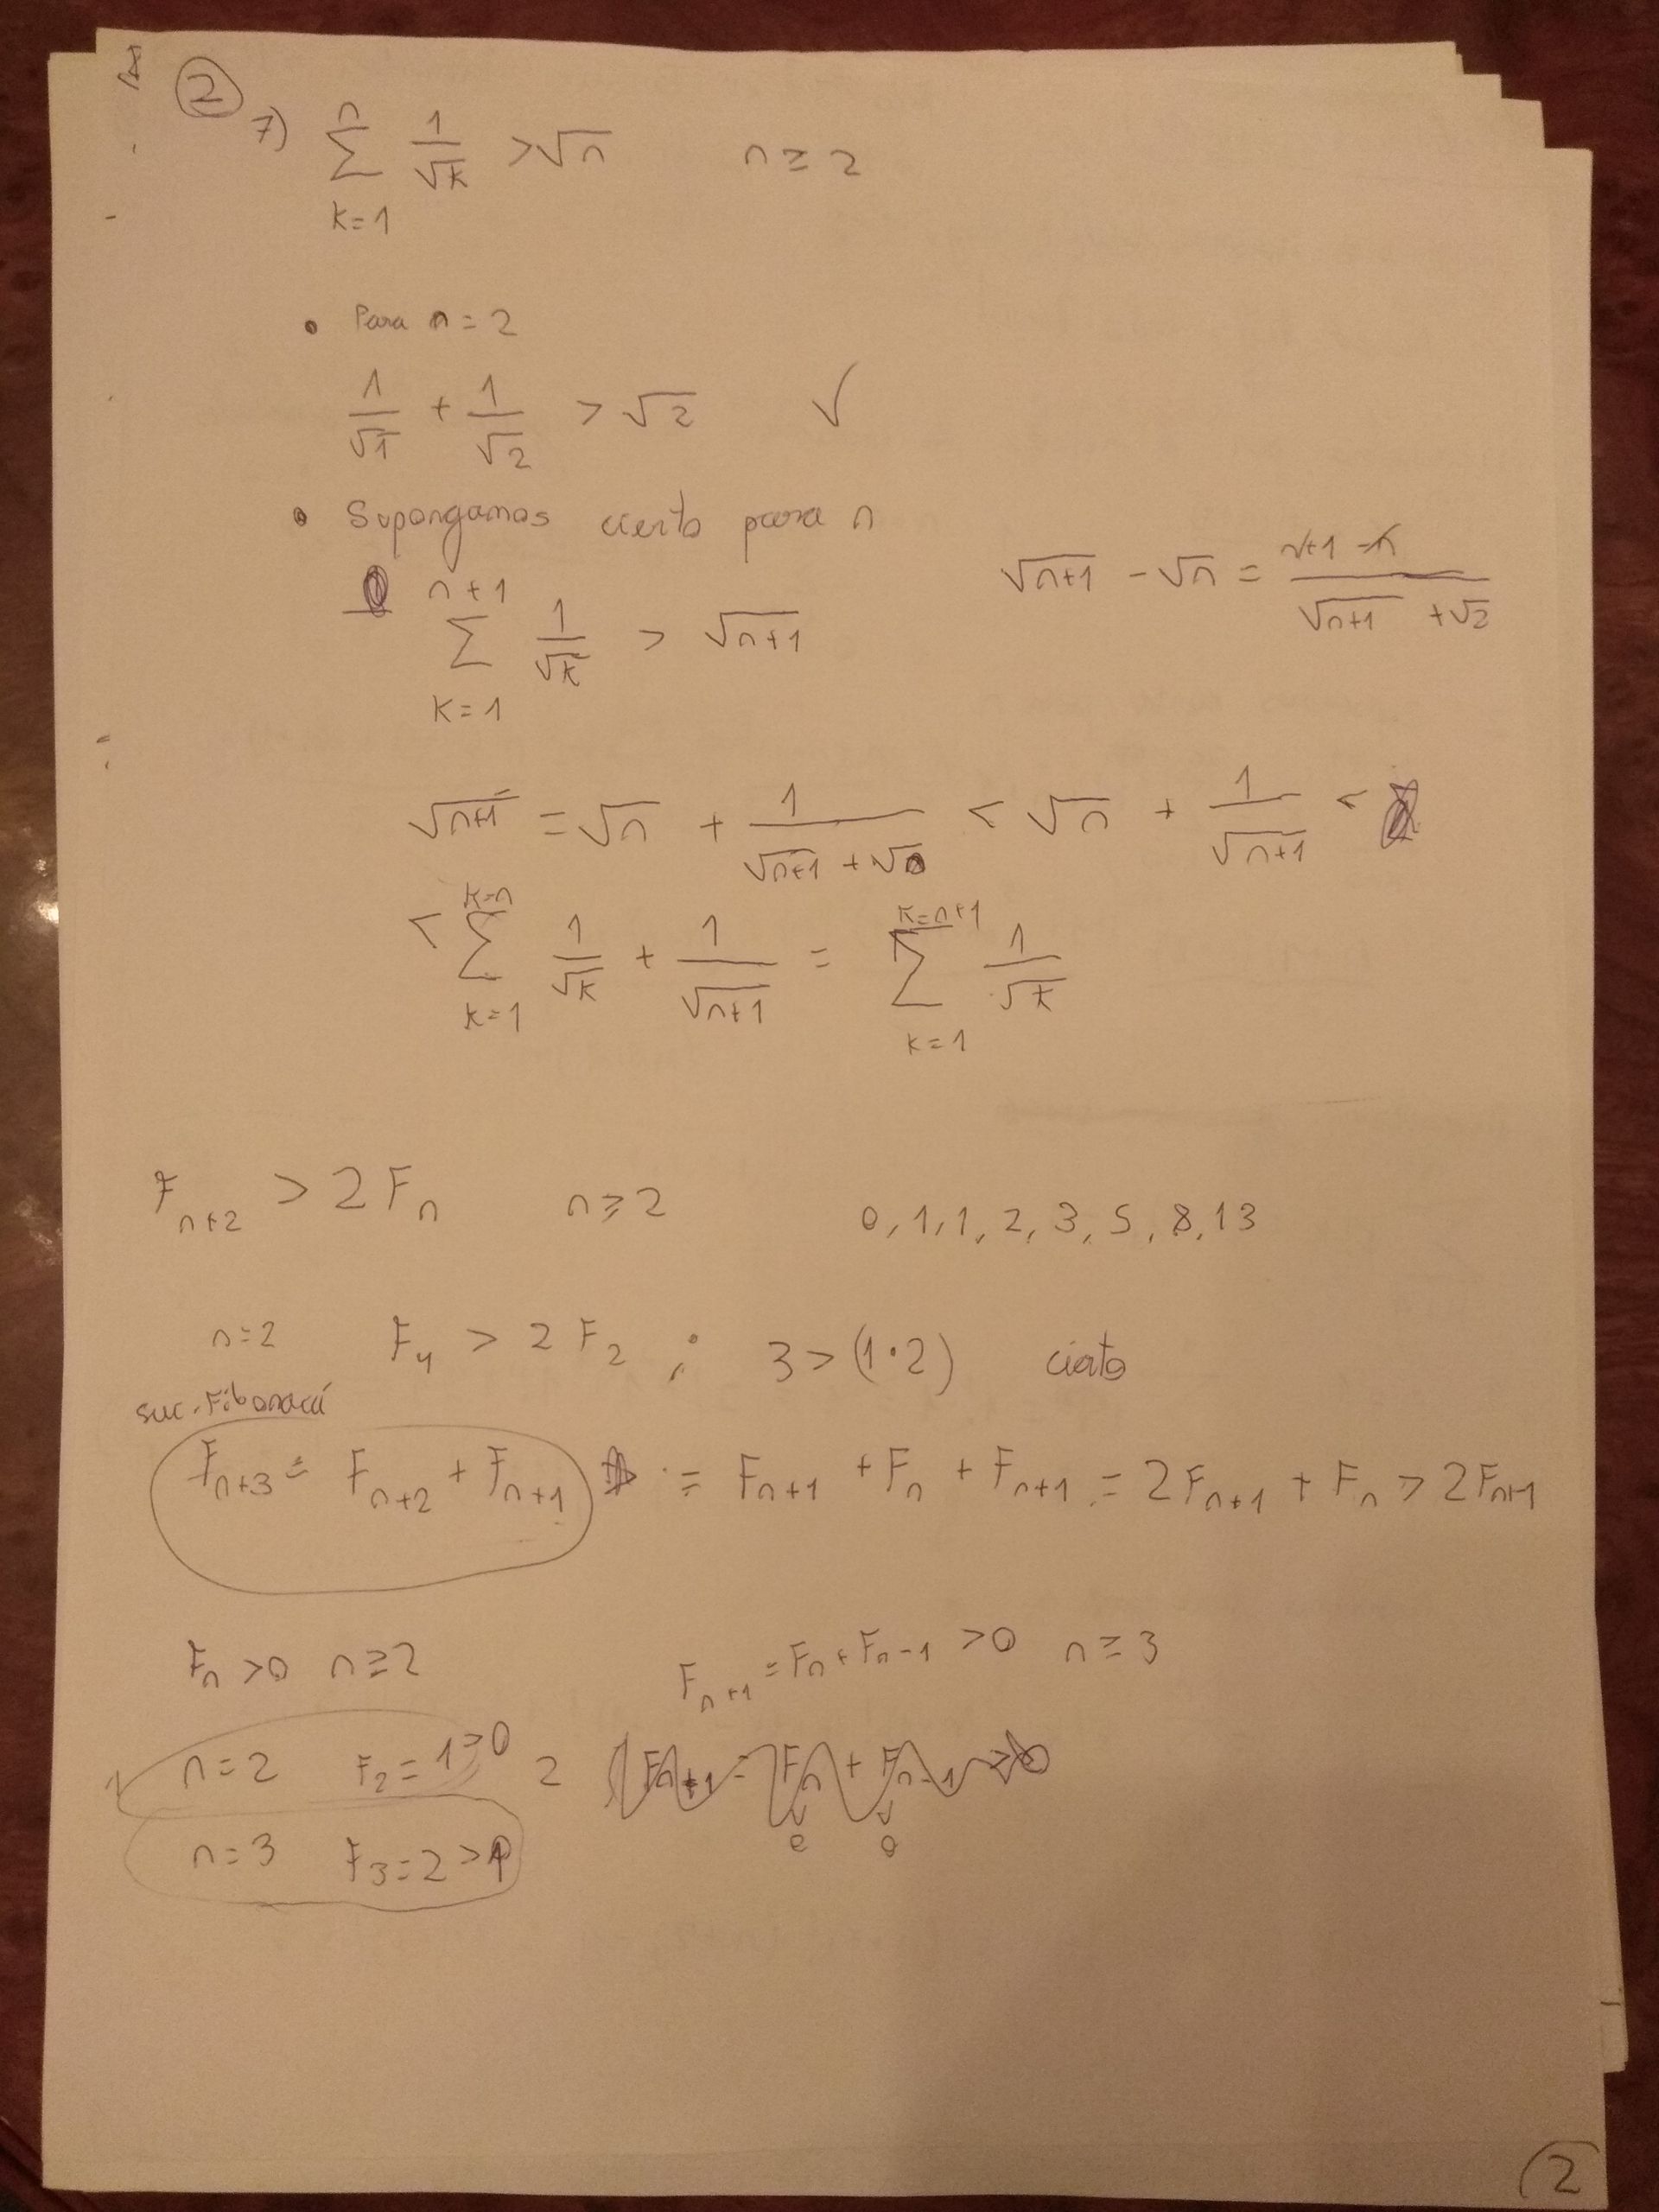 ②
7) ∑_{k=1}^{n} 1/√k > √n n ≥ 2
• Para n = 2
1/√1 + 1/√2 > √2 ✓
• Supongamos cierto para n
∑_{k=1}^{n+1} 1/√k > √(n+1)
√(n+1) - √n = (n+1-n)/(√(n+1) + √2)
√(n+1) = √n + 1/(√(n+1) + √n) < √n + 1/√(n+1) <
< ∑_{k=1}^{k=n} 1/√k + 1/√(n+1) = ∑_{k=1}^{k=n+1} 1/√k
F_{n+2} > 2F_n n ≥ 2 0, 1, 1, 2, 3, 5, 8, 13
n=2 F_4 > 2F_2 ; 3 > (1·2) cierto
suc. Fibonacci
F_{n+3} = F_{n+2} + F_{n+1} = F_{n+1} + F_n + F_{n+1} = 2F_{n+1} + F_n > 2F_{n+1}
F_n > 0 n ≥ 2 F_{n+1} = F_n + F_{n-1} > 0 n ≥ 3
n=2 F_2 = 1 > 0 2 F_{n+1} = F_n + F_{n-1} > 0
n=3 F_3 = 2 >
2